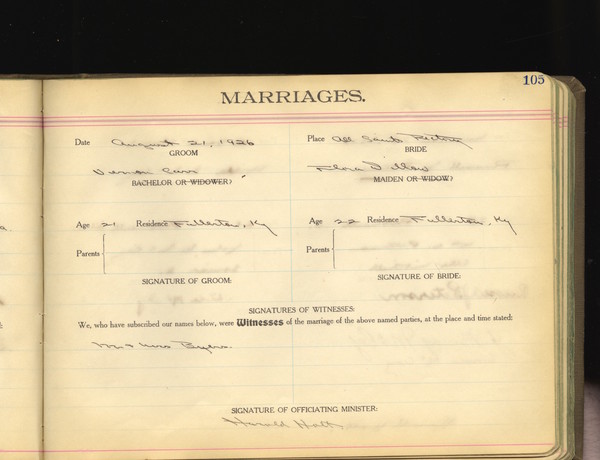 105
MARRIAGES.
Date August 21, 1926 Place All Saints Rectory
GROOM BRIDE
Vernon Carr Flora D
BACHELOR OR WIDOWER? MAIDEN OR WIDOW?
Age 21 Residence Fullerton, Ky Age 22 Residence Fullerton, Ky
Parents Parents
SIGNATURE OF GROOM: SIGNATURE OF BRIDE:
SIGNATURES OF WITNESSES:
We, who have subscribed our names below, were Witnesses of the marriage of the above named parties, at the place and time stated:
Mr & Mrs Byers.
SIGNATURE OF OFFICIATING MINISTER:
Harold Holt.